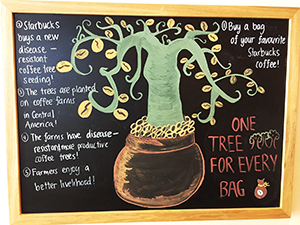 ② Starbucks
buys a new
disease -
resistant
coffee tree
seedling!
③ The trees are planted
on coffee farms
in Central
America!
④ The farms have disease -
resistant more productive
coffee trees!
⑤ Farmers enjoy a
better livelihood!
① Buy a bag
of your favourite
Starbucks
coffee!
ONE
TREE
FOR EVERY
BAG